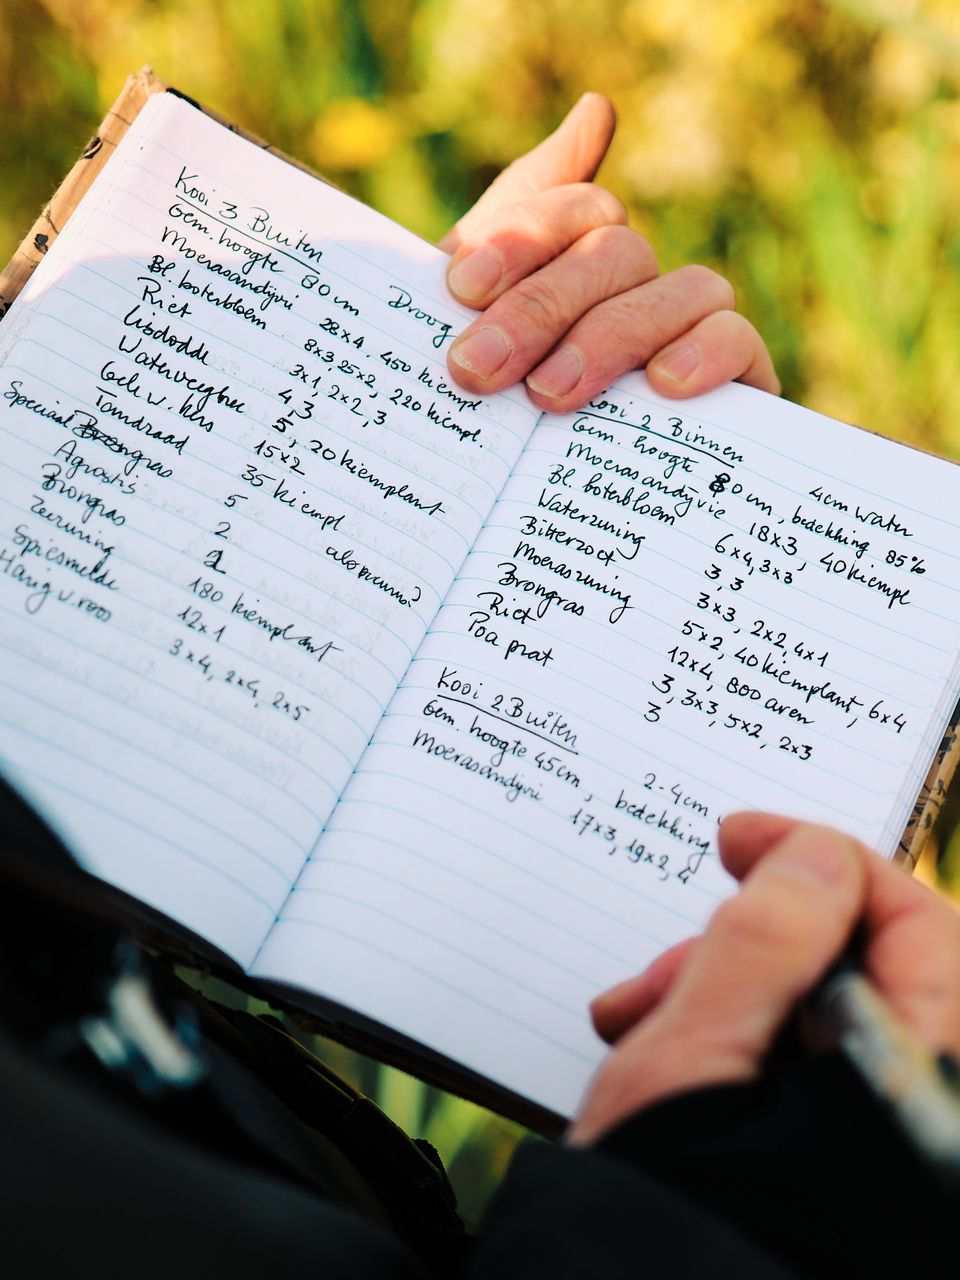 Kooi 3 Buiten
Gem. hoogte 80 cm Droog
Moerasandijvie 28x4, 450 kiempl.
Bl. boterbloem 8x3, 25x2, 220 kiempl.
Riet 3x1, 2x2, 3
Lisdodde 4, 3
Waterweegbree 5, 20 kiemplant
Gele w. kers 15x2
Tandzaad 35 kiempl
Speciaal gras 5 alopecurus?
Agrostis 2
Zwongras 2
Zeezuring 180 kiemplant
Spiesmelde 12x1
Harig w.roos 3x4, 2x4, 2x5
Kooi 2 Binnen
Gem. hoogte 80 cm, bedekking 85% 4cm water
Moerasandijvie 18x3, 40 kiempl
Bl. boterbloem 6x4, 3x3
Waterzuring 3, 3
Bitterzoet 3x3, 2x2, 4x1
Moeraszuring 5x2, 40 kiemplant, 6x4
Zwongras 12x4, 800 aren
Riet 3, 3x3, 5x2, 2x3
Poa prat 3
Kooi 2 Buiten
Gem. hoogte 45cm, bedekking 2-4cm
Moerasandijvie 17x3, 19x2, 4